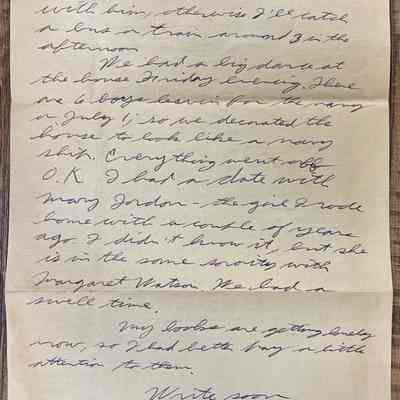 with him, otherwise I'll catch
a bus or train around 3 in the
afternoon
We had a big dance at
the house Friday evening. There
are 6 boys leavin for the navy
on July 1, so we decorated the
house to look like a navy
ship. Everything went off
O.K. I had a date with
Mary Jordon - the girl I rode
home with a couple of years
ago. I didn't know it, but she
is in the same sorority with
Margaret Watson. We had a
swell time.
My books are getting lonely
now, so I had better pay a little
attention to them.
Write soon